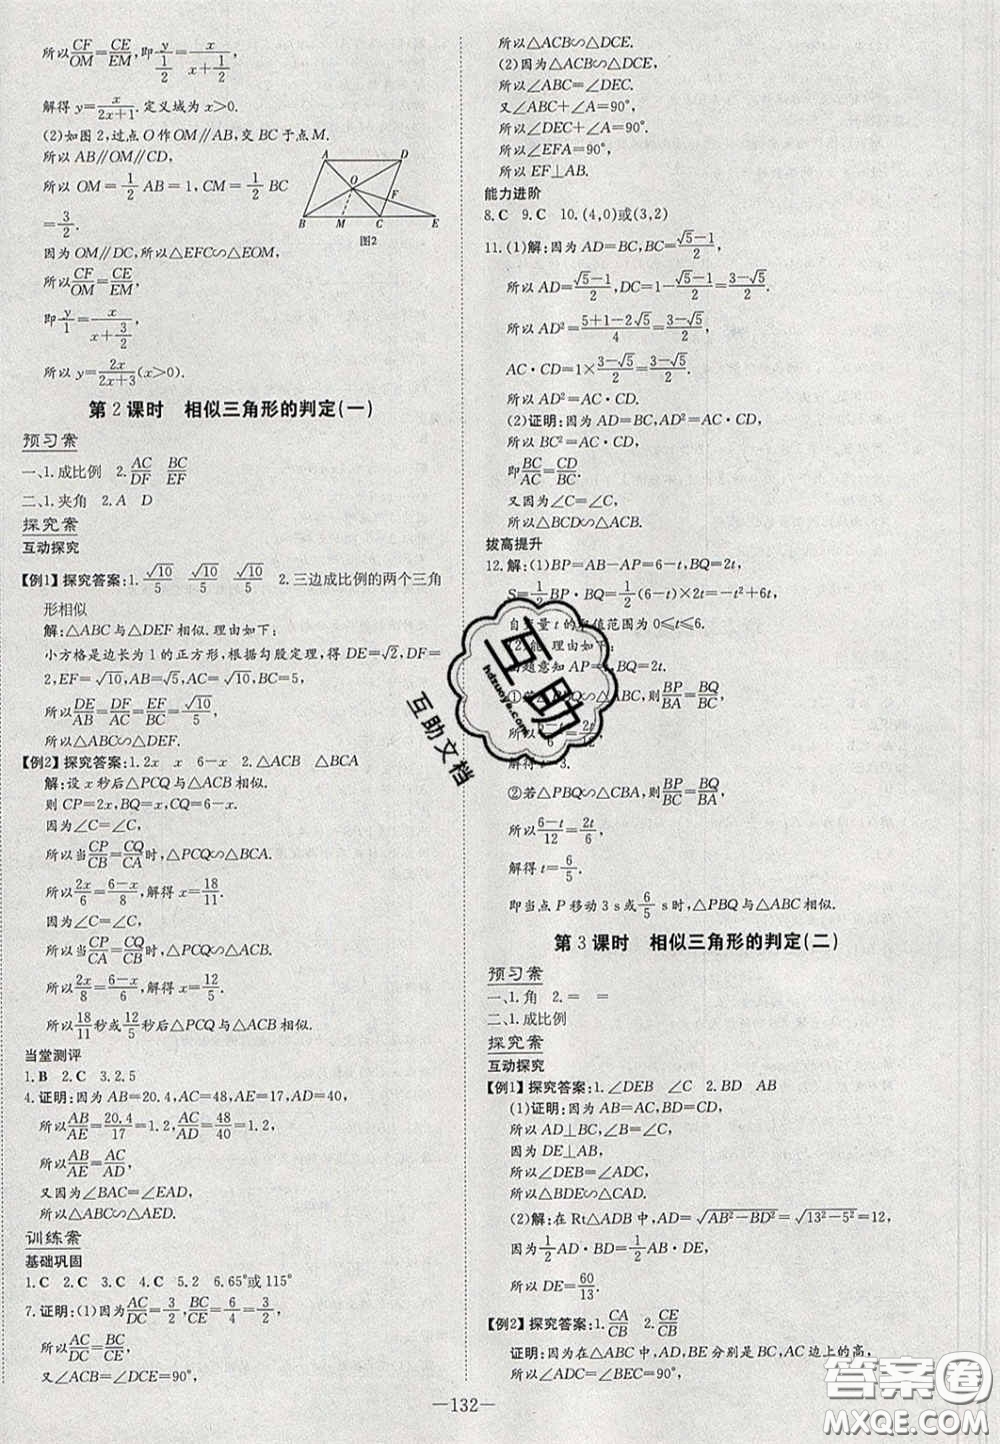 所以CF/OM=CE/EM,即y/(1/2)=x/(x+1/2),
解得y=x/(2x+1).定义域为x>0.
(2)如图2,过点O作OM∥AB,交BC于点M.
所以AB∥OM∥CD,
所以OM=1/2 AB=1,CM=1/2 BC=
3/2.
A D O F B M C E
图2
因为OM∥DC,所以△EFC∽△EOM,
所以CF/OM=CE/EM,
即y/1=x/(x+3/2),
所以y=2x/(2x+3)(x>0).
第2课时 相似三角形的判定(一)
预习案
一、1.成比例 2.AC/DF BC/EF
二、1.夹角 2.A D
探究案
互动探究
【例1】探究答案:1.√10/5 √10/5 √10/5 2.三边成比例的两个三角
形相似
解:△ABC与△DEF相似.理由如下:
小方格是边长为1的正方形,根据勾股定理,得DE=√2,DF=
2,EF=√10,AB=√5,AC=√10,BC=5,
所以DE/AB=DF/AC=EF/BC=√10/5,
所以△ABC∽△DEF.
【例2】探究答案:1.2x x 6-x 2.△ACB △BCA
解:设x秒后△PCQ与△ACB相似.
则CP=2x,BQ=x,CQ=6-x.
因为∠C=∠C,
所以当CP/CB=CQ/CA时,△PCQ∽△BCA.
所以2x/6=(6-x)/8,解得x=18/11.
因为∠C=∠C,
所以当CP/CA=CQ/CB时,△PCQ∽△ACB.
所以2x/8=(6-x)/6,解得x=12/5.
所以18/11秒或12/5秒后△PCQ与△ACB相似.
当堂测评
1.B 2.C 3.2.5
4.证明:因为AB=20.4,AC=48,AE=17,AD=40,
所以AB/AE=20.4/17=1.2,AC/AD=48/40=1.2,
所以AB/AE=AC/AD,
又因为∠BAC=∠EAD,
所以△ABC∽△AED.
训练案
基础巩固
1.C 2.C 3.C 4.C 5.2 6.65°或115°
7.证明:(1)因为AC/DC=3/2,BC/CE=6/4=3/2,
所以AC/DC=BC/CE,
又∠ACB=∠DCE=90°,
所以△ACB∽△DCE.
(2)因为△ACB∽△DCE,
所以∠ABC=∠DEC.
又∠ABC+∠A=90°,
所以∠DEC+∠A=90°,
所以∠EFA=90°,
所以EF⊥AB.
能力进阶
8.C 9.C 10.(4,0)或(3,2)
11.(1)解:因为AD=BC,BC=(√5-1)/2,
所以AD=(√5-1)/2,DC=1-(√5-1)/2=(3-√5)/2.
所以AD²=(5+1-2√5)/4=(3-√5)/2,
AC·CD=1×(3-√5)/2=(3-√5)/2,
所以AD²=AC·CD.
(2)证明:因为AD=BC,AD²=AC·CD,
所以BC²=AC·CD,
即BC/AC=CD/BC.
又因为∠C=∠C,
所以△BCD∽△ACB.
拔高提升
12.解:(1)BP=AB-AP=6-t,BQ=2t,
S=1/2 BP·BQ=1/2(6-t)×2t=-t²+6t,
自变量t的取值范围为0≤t≤6.
(2)能,理由如下:
由题意知AP=t,BQ=2t.
①若△PBQ∽△ABC,则BP/BA=BQ/BC,
所以(6-t)/6=2t/12,
解得t=3.
②若△PBQ∽△CBA,则BP/BC=BQ/BA,
所以(6-t)/12=2t/6,
解得t=6/5.
即当点P移动3 s或6/5 s时,△PBQ与△ABC相似.
第3课时 相似三角形的判定(二)
预习案
一、1.角 2.= =
二、1.成比例
探究案
互动探究
【例1】探究答案:1.∠DEB ∠C 2.BD AB
(1)证明:因为AB=AC,BD=CD,
所以AD⊥BC,∠B=∠C.
因为DE⊥AB,
所以∠DEB=∠ADC,
所以△BDE∽△CAD.
(2)解:在Rt△ADB中,AD=√(AB²-BD²)=√(13²-5²)=12,
因为1/2 AD·BD=1/2 AB·DE,
所以DE=60/13.
【例2】探究答案:1.CA/CB 2.CE/CB
证明:因为在△ABC中,AD,BE分别是BC,AC边上的高,
所以∠ADC=∠BEC=90°,
—132—
互助
hdzuoye.com
互助文档
答案圈
MXQE.COM